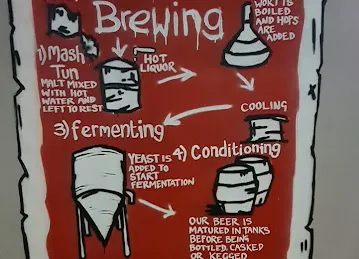 Brewing
1) Mash
Tun
MALT MIXED
WITH HOT
WATER AND
LEFT TO REST
HOT
LIQUOR
WORT IS
BOILED
AND HOPS
ARE
ADDED
COOLING
3) fermenting
YEAST IS
ADDED TO
START
FERMENTATION
4) Conditioning
OUR BEER IS
MATURED IN TANKS
BEFORE BEING
BOTTLED, CASKED
OR KEGGED